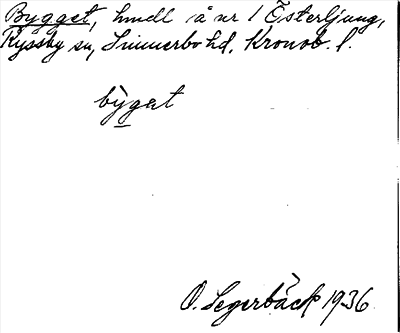 Bygget, hmdl å nr 1 Österljung,
Ryssby sn, Sunnerbo hd, Kronob. l.
bỳgət
O. Segerbäck 1936